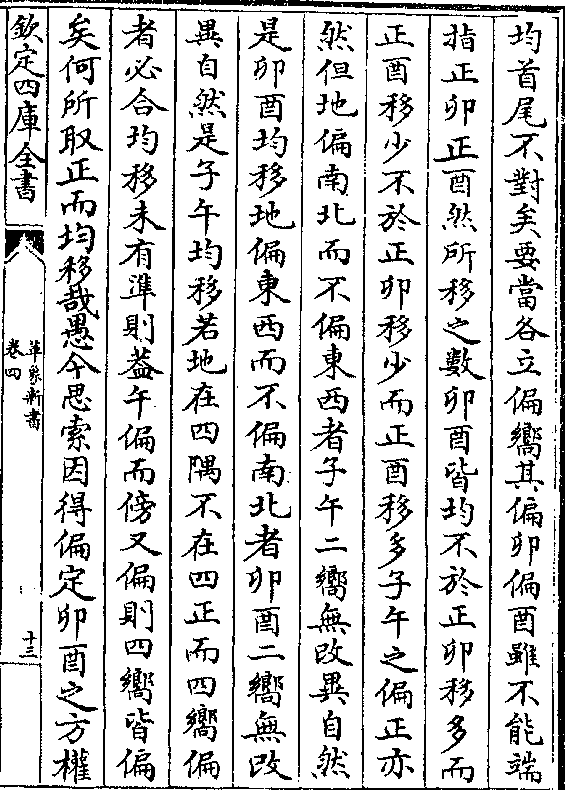 均首尾不對矣要當各立偏嚮其偏卯偏酉雖不能端
指正卯正酉然所移之數卯酉皆均不於正卯移多而
正酉移少不於正卯移少而正酉移多子午之偏正亦
然但地偏南北而不偏東西者子午二嚮無改異自然
是卯酉均移地偏東西而不偏南北者卯酉二嚮無改
異自然是子午均移若地在四隅不在四正而四嚮偏
者必合均移未有準則葢午偏而傍又偏則四嚮皆偏
矣何所取正而均移哉愚今思索因得偏定卯酉之方權
欽定四庫全書
革象新書
卷四
十三